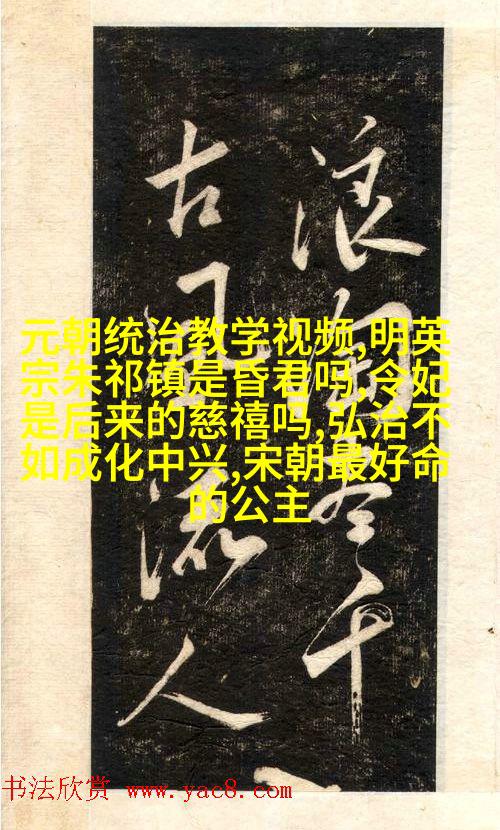 浪淘尽千
古风流人
元朝统治教学视频,明英
宗朱祁镇是昏君吗,令妃
是后来的慈禧吗,弘治不
如成化中兴,宋朝最好命
的公主
书法欣赏 www.yac8.com